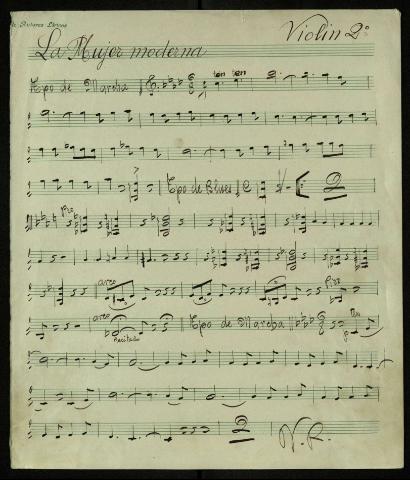 Autores Líricos
Violin 2º
La Mujer moderna
Tpo de Marcha ten ten
Tpo de Blues C 2
Pizz
arco Pizz
arco Recitado Tpo de Marcha
2